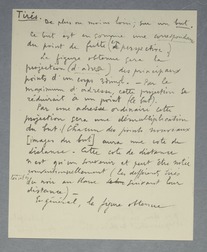 Tirés. De plus ou moins loin; sur un but.
le but est en somme une correspondance
du point de fuite (de perspective)
La figure obtenue sera la
projection (d'adresse) des principaux
points d'un corps Par le
maximum d'adresse, cette projection se
réduirait à un point (le but).
Par une adresse ordinaire cette
projection sera une démultiplication
du but. (Chacun des points nouveaux
[images du but] aura une cote de
distance. Cette cote de distance
n'est qu'un souvenir et peut être notée
conventionnellement (les différents tirés
du noir au blanc suivant leur
distance)
En général, la figure obtenue